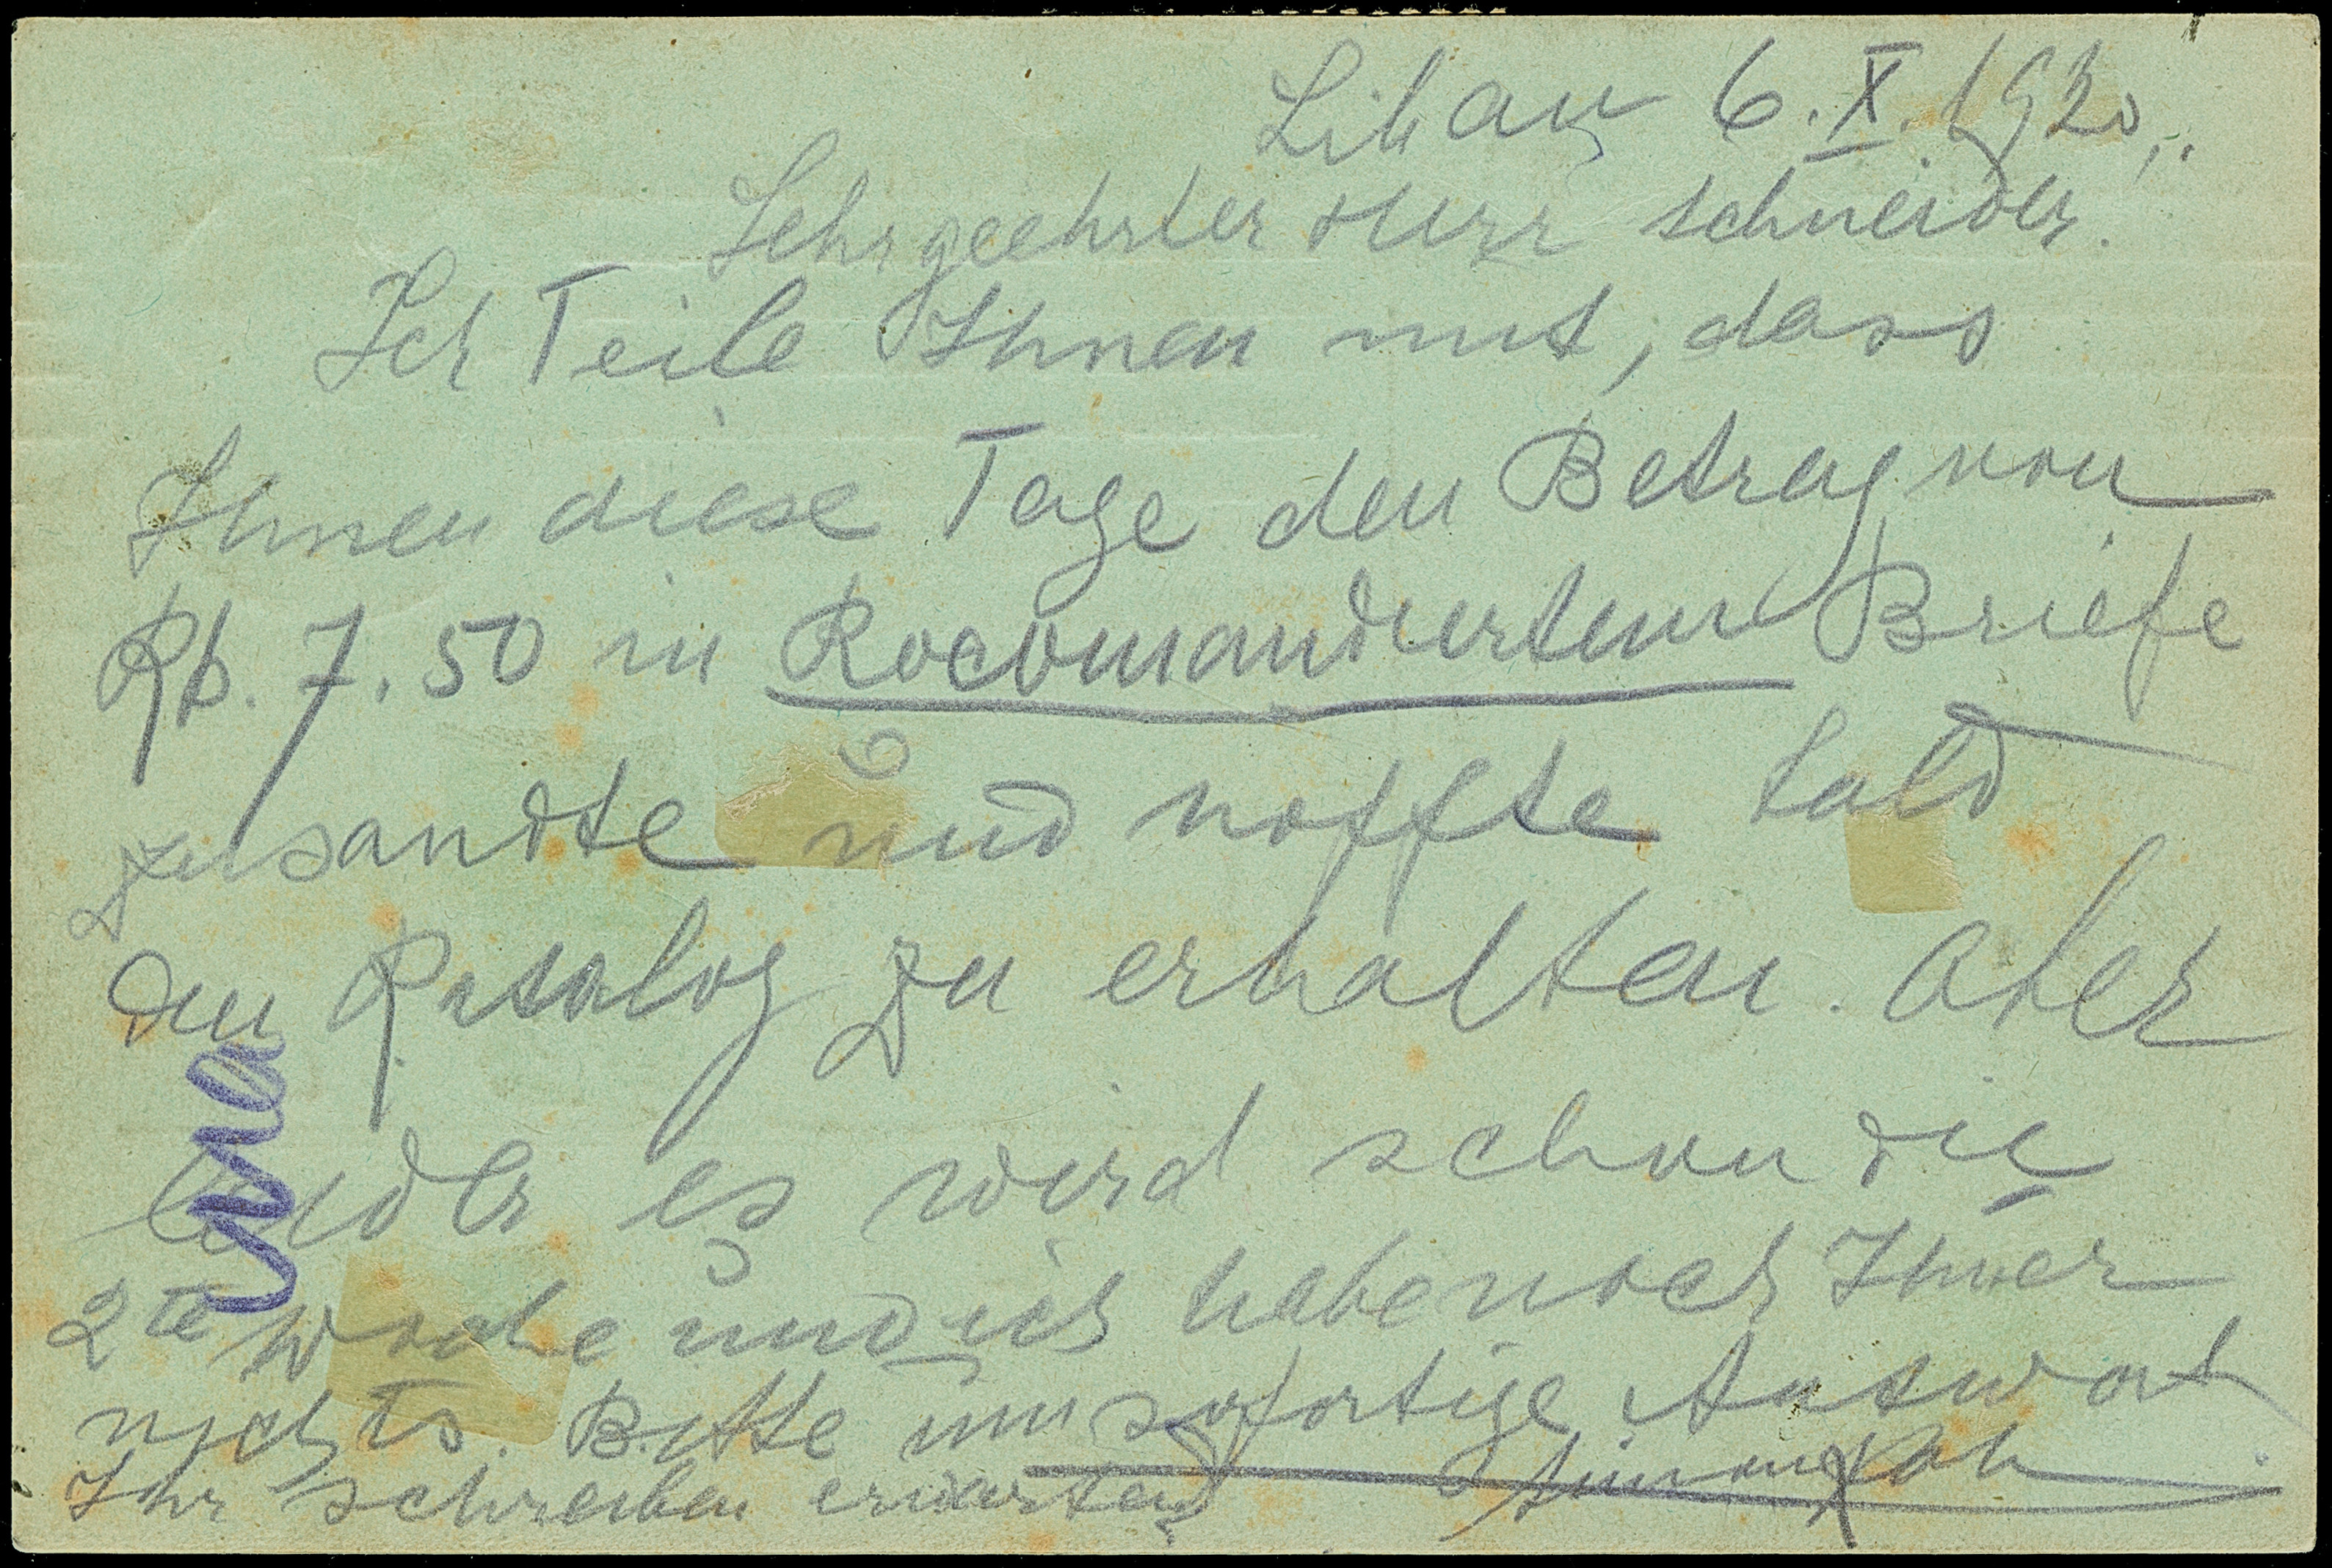 Libau 6. X. 1920,
Sehr geehrter Herr Schneider.
Ich Teile Ihnen mit, dass
Ihnen diese Tage den Betrag von
Rb. 7.50 in Rocomandiertem Briefe
zusandte und hoffte bald
den Katalog zu erhalten. Aber
leider es wird schon die
2te Woche und ich habe noch Immer
nichts. Bitte um sofortige Antwort
Ihr schreiben erwartend